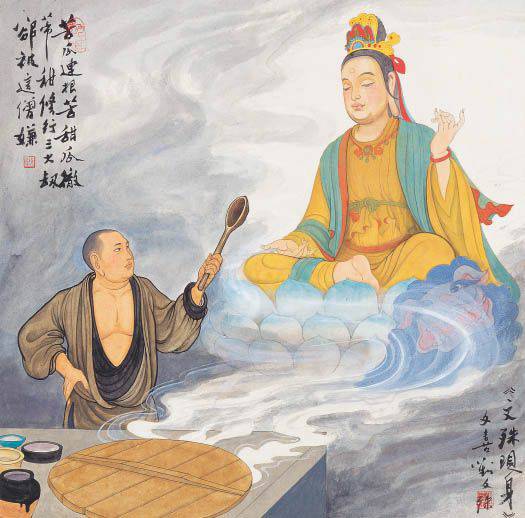 苦瓜連根苦甜瓜徹
蒂甜修行三大劫
卻被這僧嫌
《文殊現身》
文喜